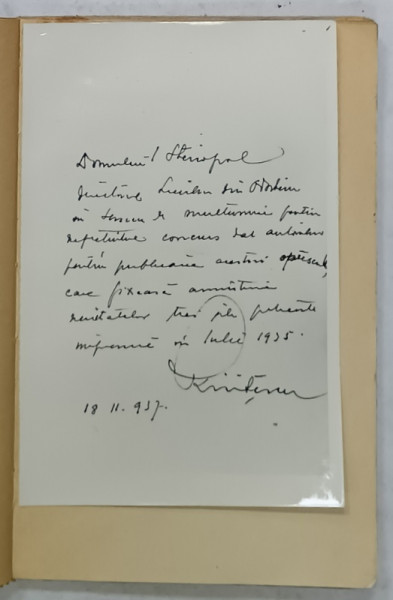 Domnului Steriopol
directorul Liceului din Orhei
în semn de mulțumire pentru
concurs dat autorului
pentru publicarea acestui opuscul,
care fixează amintirea
trei zile petrecute
împreună în Iulie 1935.
18 II. 937.